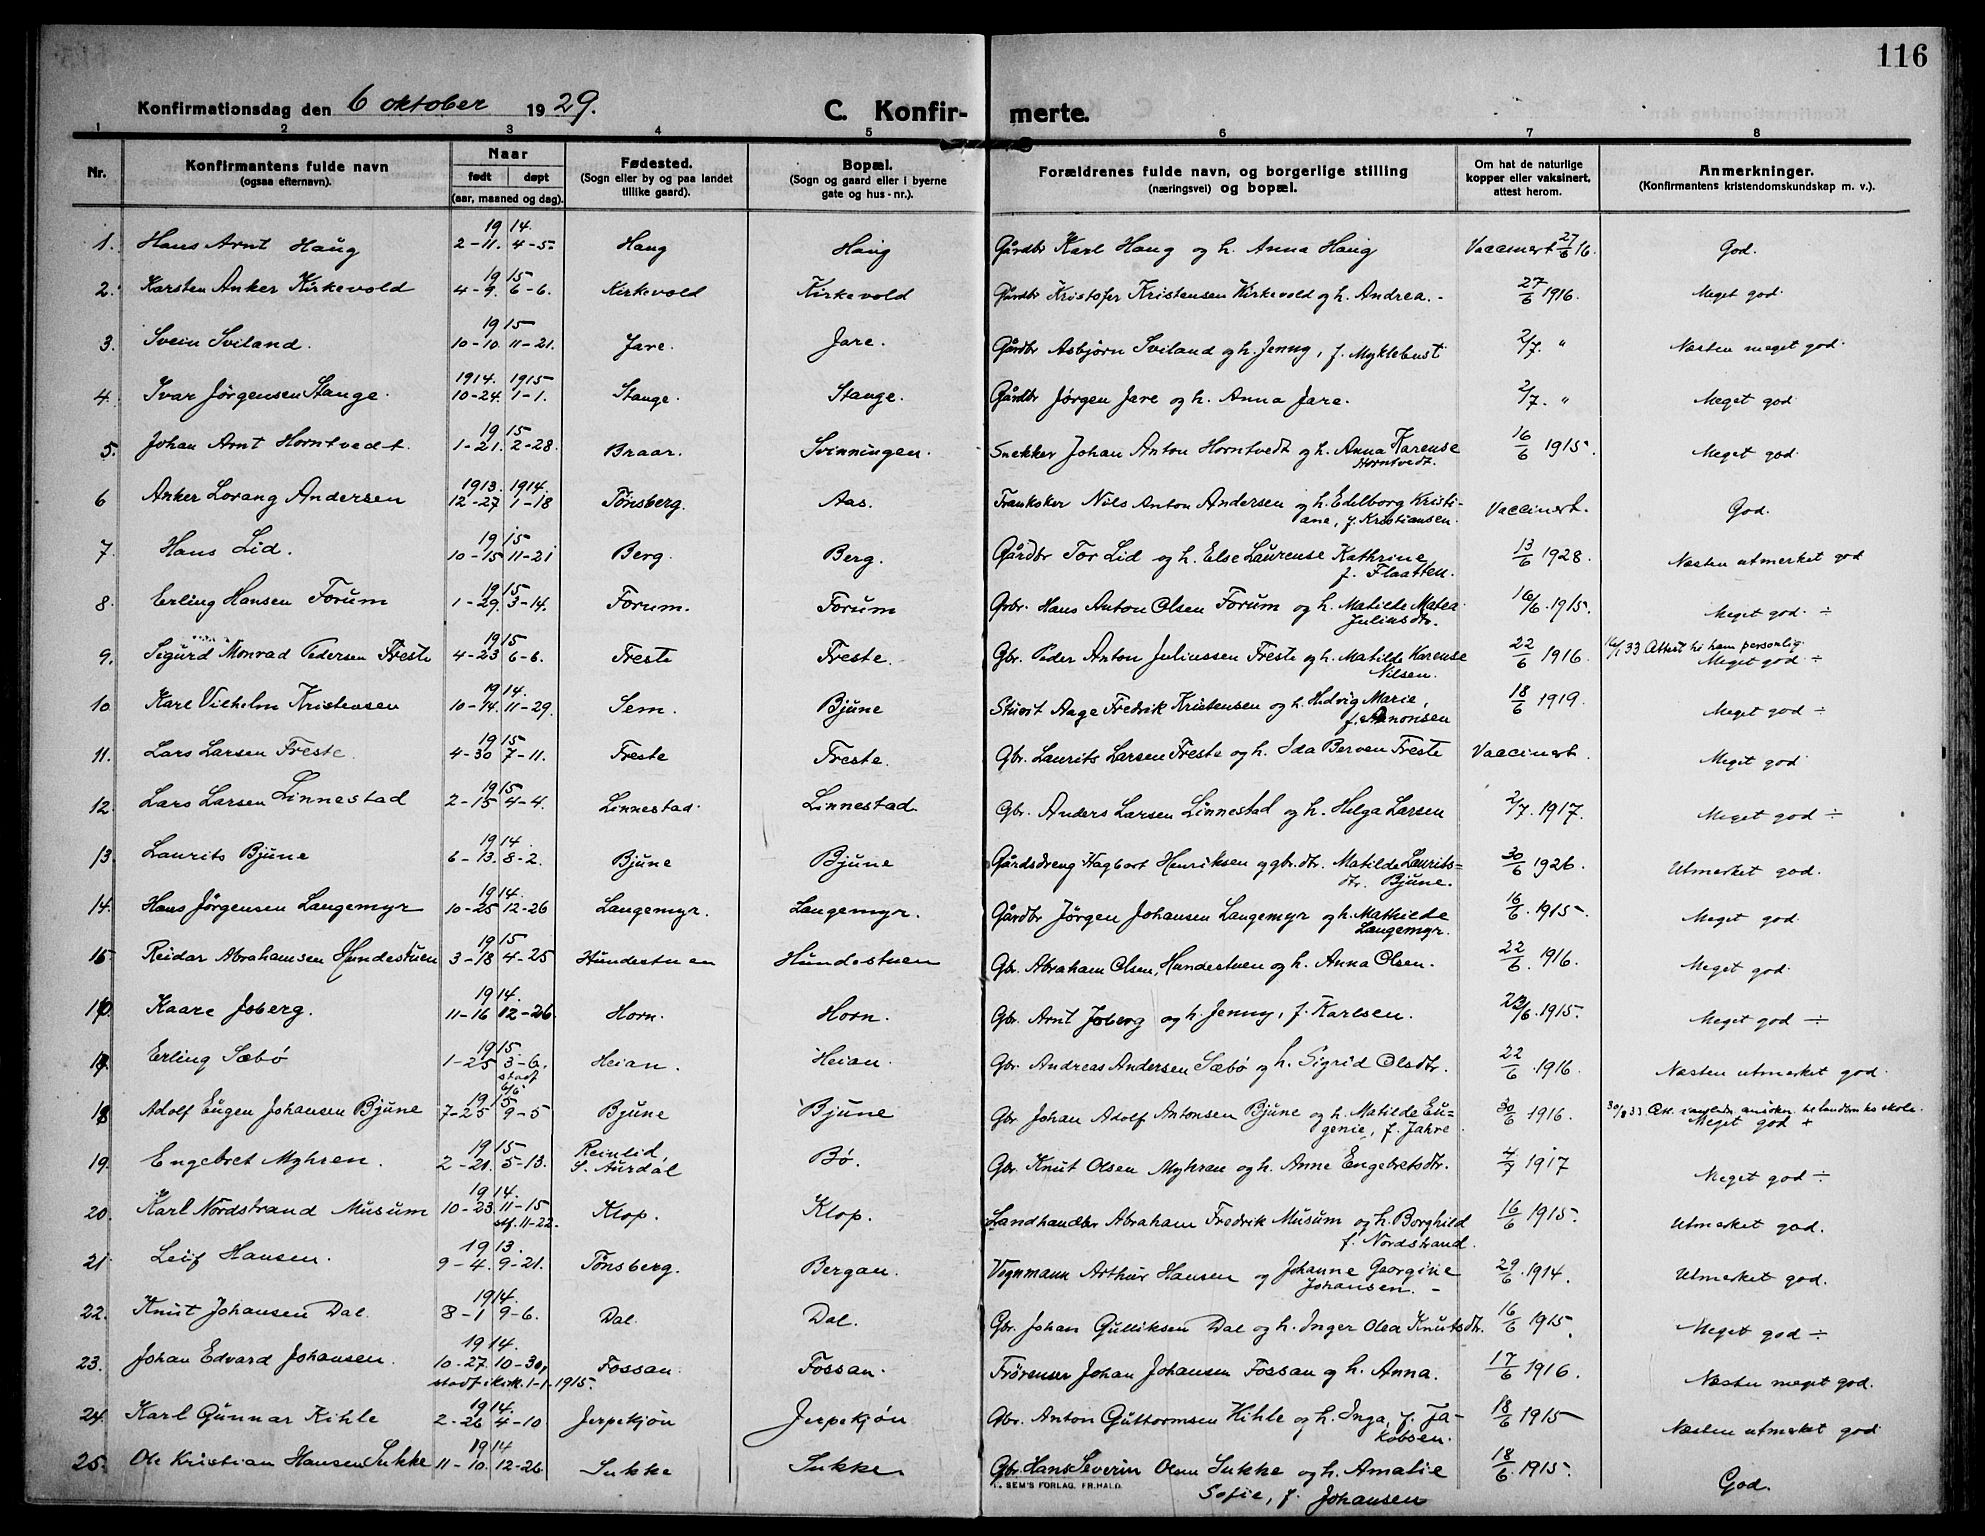 116
Konfirmationsdag den 6 oktober 1929.
C. Konfir- merte.
1 2 3 4 5 6 7 8
Nr. Konfirmantens fulde navn (ogsaa efternavn). Naar født døpt (aar, maaned og dag). Fødested. (Sogn eller by og paa landet tillike gaard). Bopæl. (Sogn og gaard eller i byerne gate og hus-nr.). Forældrenes fulde navn, og borgerlige stilling (næringsvei) og bopæl. Om hat de naturlige kopper eller vaksinert, attest herom. Anmerkninger. (Konfirmantens kristendomskundskap m. v.).
1914.
1. Hans Arnt Haug 2-11. 4-5. Haug Haug Gårdbr Karl Haug og h. Anna Haug Vaccinert 27/6 16. God.
1915
2. Karsten Anker Kirkevold 4-9. 6-6. Kirkevold Kirkevold Gårdbr Kristofer Kristensen Kirkevold og h. Andrea. - 27/6 1916. Meget god
1915
3. Svein Sviland. 10-10. 11-21. Jare. Jare. Gårdbr Asbjørn Sviland og h. Jenny, f. Myklebust 2/7. " Næsten meget god.
1914. 1915
4. Ivar Jørgensen Stange. 10-24. 1-1. Stange. Stange. Gårdbr Jørgen Jare og h. Anna Jare. 2/7. " Meget god
1915
5. Johan Arnt Horntvedt. 1-21. 2-28. Braar. Svinningen. Snekker Johan Anton Horntvedt og h. Anna Karense Horntvedt. 16/6 1915. Meget god
1913. 1914.
6 Anker Lorang Andersen 12-27 1-18 Tønsberg. Aas. Trankoker Nils Anton Andersen og h. Edelborg Kristiane, f. Kristiansen. Vaccinert. God.
1915
7. Hans Lid. 10-15 11-21 Berg. Berg. Gårdbr Tor Lid og h. Else Laurense Kathrine f. Flaatten. 13/6 1928. Næsten utmerket god
1915
8. Erling Hansen Forum 1-29. 3-14. Forum. Forum Grbr. Hans Anton Olsen Forum og h. Matilde Matea Juliusdtr. 16/6. 1915. Meget god. ÷
1915
9. Sigurd Monrad Pedersen Freste 4-23 6-6. Freste Freste. Gbr. Peder Anton Juliussen Freste og h. Matilde Karense Nilsen. 22/6 1916. 33 Attest til ham personlig. Meget god ÷
1914.
10. Kare Vilhelm Kristensen 10-14. 11-29. Sem. Bjune Stuert Aage Fredrik Kristensen og h. Hedvig Marie, f. Annonsen 18/6 1919. Meget god ÷
1915
11. Lars Larsen Freste. 4-30 7-11. Freste Freste. Gbr. Laurits Larsen Freste og h. Ida Berven Freste Vaccinert. Meget god
1915
12. Lars Larsen Linnestad 2-15 4-4. Linnestad. Linnestad. Gbr. Anders Larsen Linnestad og h. Helga Larsen 2/7. 1917. Meget god ÷
1914
13. Laurits Bjune 6-13. 8-2. Bjune Bjune Gårdsdreng Hagbart Henriksen og gbr.dtr. Matilde Lauritsdtr. Bjune. 30/6 1926. Utmerket god.
1914.
14. Hans Jørgensen Langemyr 10-25 12-26 Langemyr. Langemyr. Gårdbr Jørgen Johansen Langemyr og h. Mathilde Langemyr. 16/6. 1915. Meget god
1915
15 Reidar Abrahamsen Hundestuen 3-18 4-25 Hundestuen Hundestuen Gbr. Abraham Olsen, Hundestuen og h. Anna Olsen. 22/6. 1916. Meget god
1914.
16. Kaare Isberg. 11-16 12-26. Horn. Horn. Gbr. Arnt Isberg og h. Jenny, f. Karlsen. 23/6. 1915. Meget god ÷
1915
17. Erling Sæbø 1-25 3-6. stadf 6/6 Heian. Heian. Gbr. Andreas Andersen Sæbø og h. Sigrid Olsdtr. 22/6. 1916. Næsten utmerket god.
1915
18 Adolf Eugen Johansen Bjune 7-25 9-5 Bjune Bjune Gbr Johan Adolf Antonsen Bjune og h. Matilde Eugenie, f. Jahre. 30/6 1916. 30/8 33 Att. Meget god +
1915
19. Engebret Myhren. 2-21. 5-13. Reinlid, S. Aurdal Bø. Gbr. Knut Olsen Myhren og h. Anne Engebretsdtr. 4/7 1917 Meget god ÷
1914.
20. Karl Nordstrand Musum 10-23. 11-15 stf. 11-22. Klop. Klop. Landhandler Abraham Fredrik Musum og h. Borghild f. Nordstrand. 16/6 1915. Utmerket god.
1913.
21 Leif Hansen. 9-4. 9-21. Tønsberg. Bergan. Vognmann Arthur Hansen og Johanne Georgine Johansen. - 29/6. 1914. Utmerket god.
1914.
22. Knut Johansen Dal. 8-1 9-6. Dal Dal. Gbr. Johan Gulliksen Dal og h. Inger Olea Knutsdtr. 16/6 1915. Meget god ÷
1914.
23. Johan Edvard Johansen. 10-27. 10-30, stadf i kirk. 1-1-1915. Fossan. Fossan. Frørenser Johan Johansen Fossan og h. Anna. 17/6 1916. Næsten meget god.
1914.
24. Karl Gunnar Kihle 2-26 4-10. Jerpekjøn Jerpekjøn Gbr. Anton Guttormsen Kihle og h. Inga, f. Jakobsen. 18/6 1915 Næsten utmerket god
1914
25. Ole Kristian Hansen Sukke 11-10. 12-26. Sukke Sukke Gbr. Hans Severin Olsen Sukke og h. Amalie Sofie, f. Johansen 18/6. 1915. God.
SEM'S FORLAG, FR.HALD.